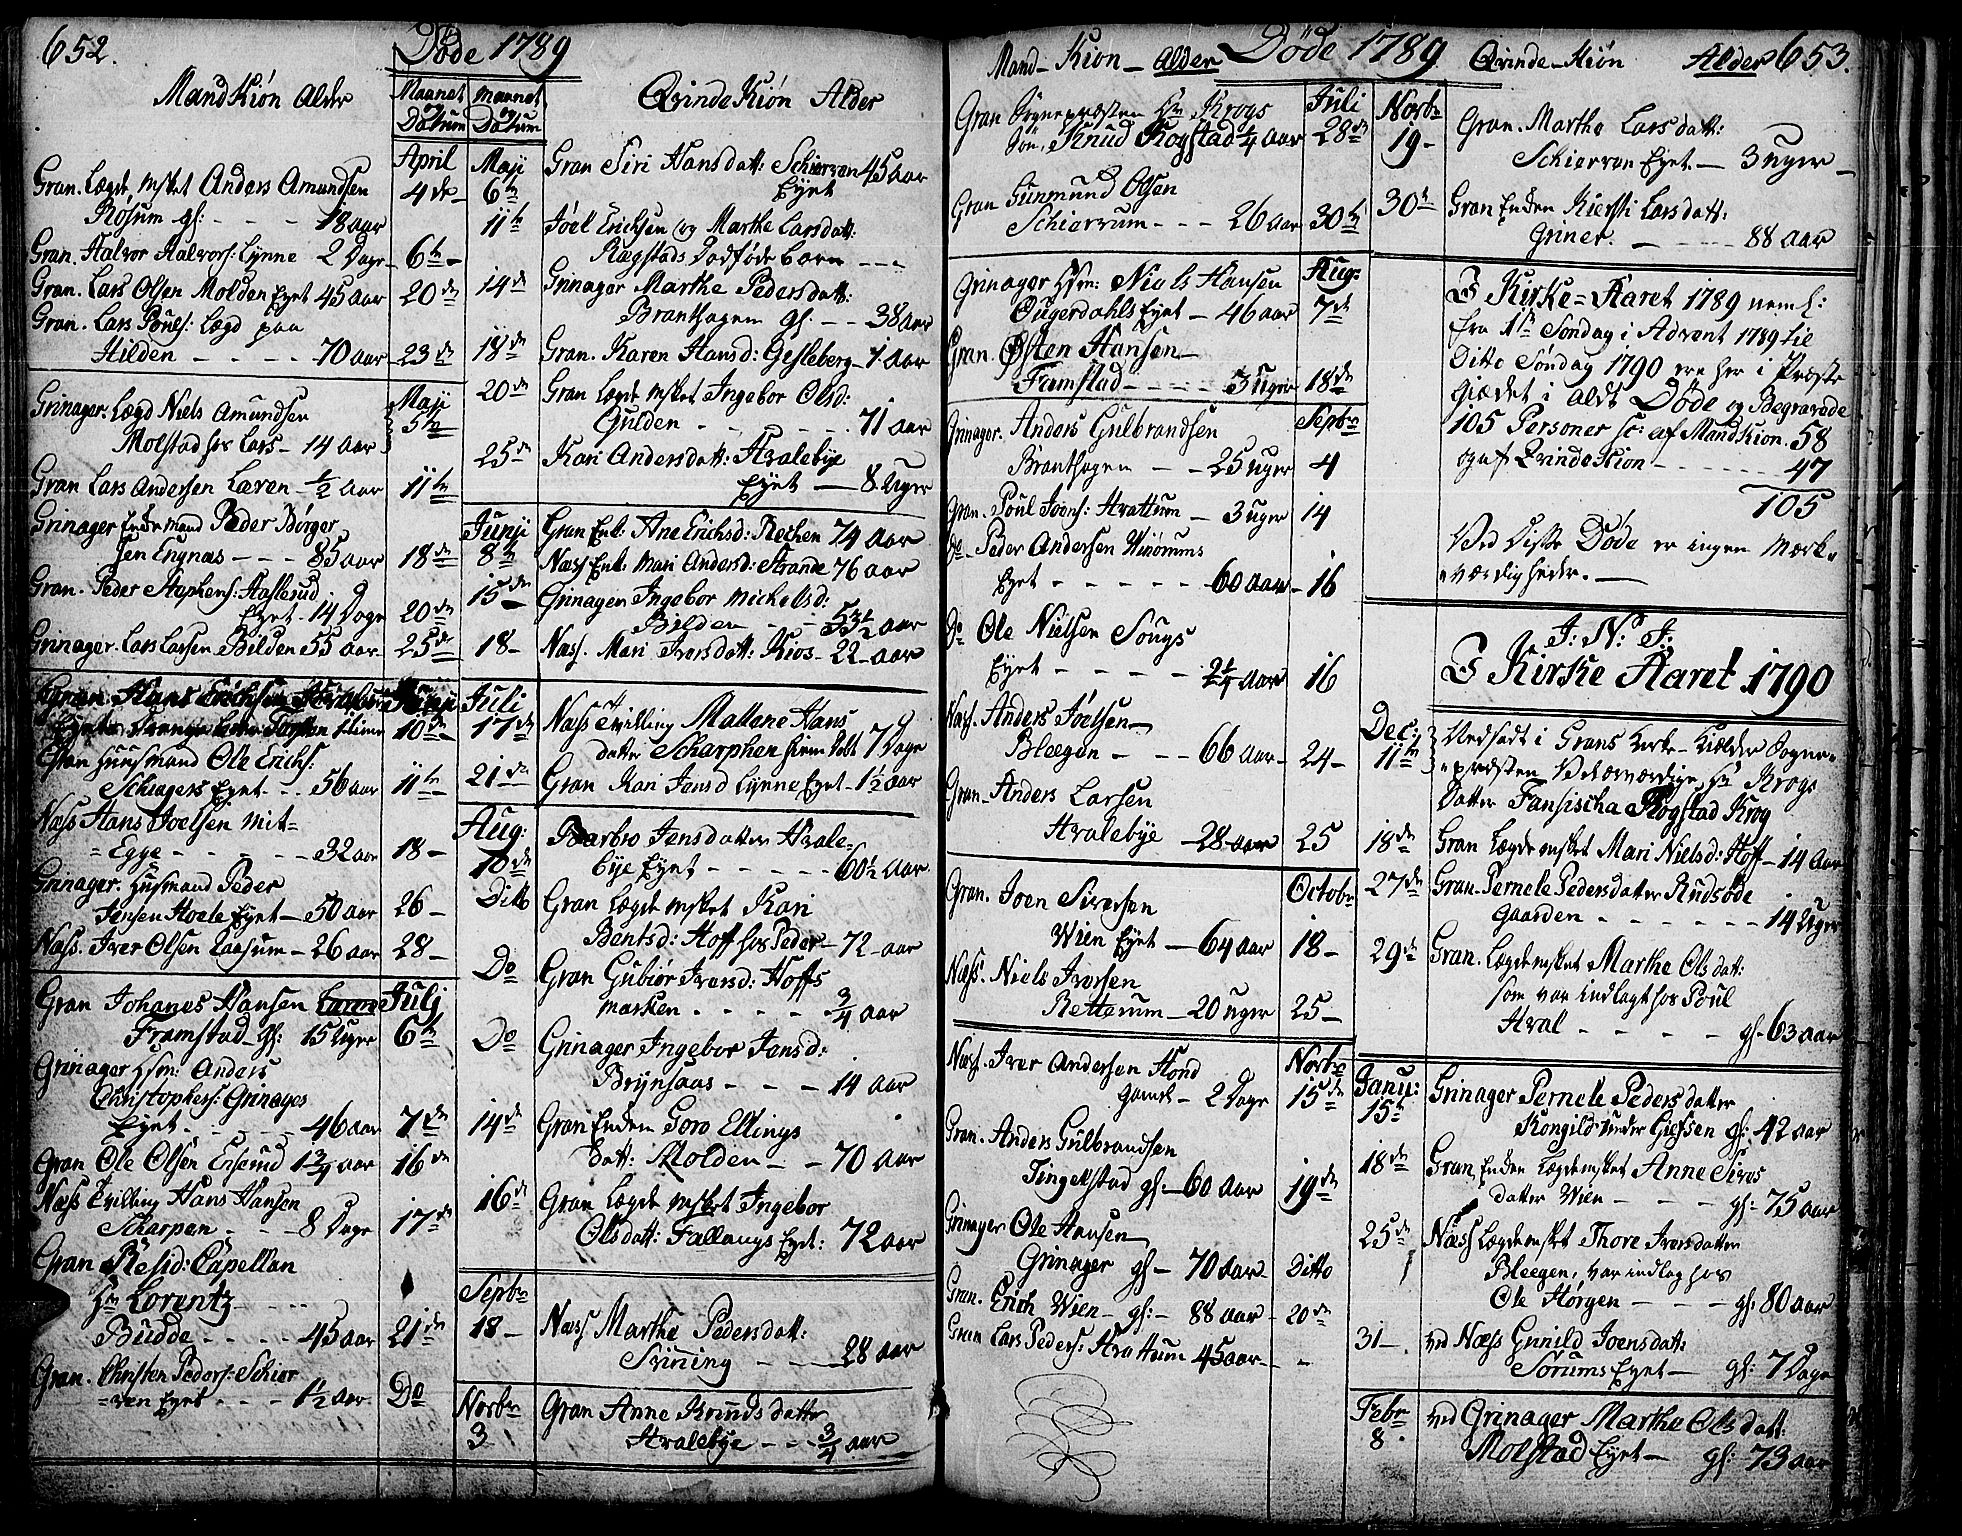 652.
Döde 1789
Mand Kiön Alder
Maanet og Datum
Maanet og Datum
Qvinde Kiön Alder
April
Gran. Lægde Msket Anders Amundsen 4de
Røsum gs: - - - 18 aar
Gran. Halvor Halvors: Lynne 2 Dage 6te
Gran. Lars Olsen Molden Eyet 45 aar 20de
Gran. Lars Pouls: Lægd paa
Hilden - - - - 70 aar 23de
Maji
Grinager: Lægd Niels Amundsen 5te
Molstad hos Lars - 14 aar
Gran Lars Andersen Læren - 1/2 aar 11te
Grinager Enkemand Peder Börger
sen Engnæs - - - 85 aar 18de
Gran. Peder Staphens: Hasterud
Eyet - 14 Dage 20de
Grinager. Lars Larsen Bilden 55 aar 25de
10de
Gran Huusmand Ole Erichs:
Schiagers Eyet - - 56 aar 11te
Næss Hans Joelsen Mit=
=Egge - - - - 32 aar 18 -
Grinager. Husmand Peder
Jensen Hoele Eyet - 50 aar 26 -
Næss. Iver Olsen Laasum - 26 aar 28 -
Julj
Gran Johanes Hansen
Framstad gs: 15 Uger 6te
Grinager Hsm: Anders
Christophers: Grinages
Eyet - - - - 46 aar 7de
Gran Ole Olsen Enserud 1 3/4 aar 16de
Næss Tvilling Hans Hansen
Scharpen - - 8 Dage 17de
Gran Resid: Capellan
Hr Lorentz - - -
Budde - - - - 45 aar 21de
Gran. Christen Peders: Schier
=ven Eyet - - - 1 1/2 aar Do
Maji
6te Gran Siri Hansdatt: Schierven 45 aar
Eyet
11te Joel Erichsen og Marthe Larsdatt:
Rægstads Dødfødde Barn - - -
14de Grinager Marthe Pedersdatt:
Brænthagem gs: - - 38 aar
18de Gran. Karen Hansd: Gisleberg - 1 aar
20de Gran Lægde Msket Ingebor Olsd:
Gulden - - - - 71 aar
25de Kari Andersdatt: Hvalebye
Eyet - 8 Uger
Junij
8te Gran Enk: Ane Erichsd: Rechen 74 aar
Næss Enk: Mari Andersd: Strande 76 aar
15de Grinager Ingebor Michelsd:
Bilden - - 53 1/2 aar
18 - Næss. Mari Iversdatt: Kios - 22 - aar
Juli
17de Næss Tvilling Mallene Hans
datter Scharphen 7 Dage
21de Gran Kari Jansd Lynne Eyet - 1 1/2 aar
Aug:
10de Barbro Jensdatter Hvale=
bye Eyet - - - - 60 1/2 aar
Ditto Gran Lægde Msket Kari
Bentsd: Hoff hos Peder - 72 - aar
Do Gran Gubiør Iversd: Hoffs
marken - - - - 3/4 aar
Do Grinager Ingebor Jansd:
Brynsaas - - - 14 aar
14de Gran Enken Goro Ellings
datt: Molden - - 70 aar
16de Gran Lægde Msket Ingebor
Olsdatt: Fallangs Eyet: 72 aar
Septbr
18 - Næss Marthe Pedersdatt:
Svinning - - - 28 aar
Novbr
3 Gran Anne Knudsdatter
Hvalebye - - 3/4 aar
Mand - Kiön - Alder Döde 1789 Qvinde - Kiön Alder 653.
Juli
Gran Sognepræsten Hr Krogs
Søn, Knud Rogstad 1/4 aar 28de
Gran Gunmund Olsen
Schierrum - - - 26 aar 30te
Aug:
Grinager Hsm: Niels Hansen
Ougerdahls Eyet - 46 aar 7de
Gran. Østen Hansen
Framstad - - - 3 Uger 18de
Septbr
Grinager. Anders Gulbrandsen
Brænthagen - - 25 Uger 4
Gran. Poul Ivers: Hvattum - 3 Uger 14
Do - Peder Andersen Wirømms
Eyet - - - - - 60 aar - 16
Do Ole Nielsen Sougs
Eyet - - - - 2 1/4 aar 16
Næss. Anders Joelsen
Bleegen - - - 66 aar - 24 -
Gran - Anders Larsen
Hvalebye - 28 aar 25
Octobr
Gran. Joen Siversen
Wien Eyet - 64 aar 18 -
Næss. Niels Iversen
Retterum - 20 Uger 25 -
Novbr
Næss. Iver Andersen Hond
Gamle - 2 Dage 15de
Gran. Anders Gulbrandsen
Tingelstad gs. - 60 aar 19de
Grinager Ole Hansen
Grinager gs - 70 aar - Ditto
Gran. Erich Wien - gs: - 88 aar - 20de
Gran Lars Peders: Hvattum 45 aar - -
Novbr
19 - Gran. Marthe Larsdatt:
Schierven Eyet - 3 Uger -
30te Gran Enken Kiersti Larsdatt:
Griner. - - - - 88 aar
I Kirke-Aaret 1789 neml:
fra 1te Søndag i Advent 1789 til
Ditto Søndag 1790 ere her i Præste
giældet i aldt Døde og Begravede
105 Personer sc: af MandKiön. 58
og af QvindeKiön - - - - - 47
105
Ved Disse Døde er ingen Mærk=
=værdigheder. -
J: N: J:
I Kirke Aaret 1790
Dec:
11te Nedsadt i Grans Kirke - Kielder Sogne=
=præsten Velærværdige Hr Krogs
Datter Fansischa Rogstad Krog
18de Gran Lægde Msket Mari Nielsd: Hoff - 14 aar
27de Gran. Pernele Pedersdatter Rudsöde
gaarden - - - - - 14 Uger
29de Gran. Lægdemsket Marthe Olsdatt:
som var indlagt hos Poul
Hval - - - - gs - 63 aar
Janu:
15te Grinager Pernele Pedersdatter
Kongild under Giefsen gs: 42 aar
18de Gran, Enken Lægdemsket Anne Sivers
datter Wien - - - gs: 75 aar
25de Næss Lægdemsket Thore Iversdatter
Bleegen, var indlag hos
Ole Hörgen - - - gs. 80 aar
31 - . ved Næss Gunild Joensdatt:
Sorums Eyet - gs: 7 Dage
Febr
8. ved Grinager Marthe Olsdatt:
Molstad Eyet - gs: 73 aar